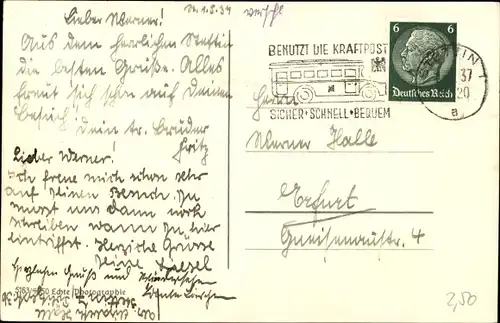 Lieber Werner!
Aus dem herrlichen Stettin
die besten Grüße. Alles
freut sich schon auf deinen
Besuch! Dein tr. Bruder
Fritz
Lieber Werner!
Ich freue mich schon sehr
auf Deinen Besuch. Du
musst uns dann noch
schreiben wann Du hier
eintriffst. Herzliche Grüsse
Deine
Herzlichen Gruß und Wiedersehen
Tante
Echte Photographie
BENUTZT DIE KRAFTPOST
SICHER · SCHNELL · BEQUEM
6 6
Deutsches Reich
37
20
a
Herrn
Werner Halle
Erfurt
Gneisenaustr. 4
2,50